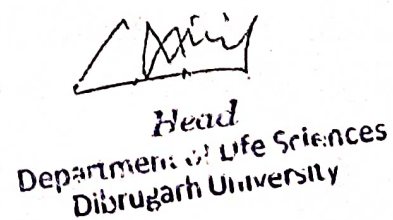 Head
Department of Life Sciences
Dibrugarh University